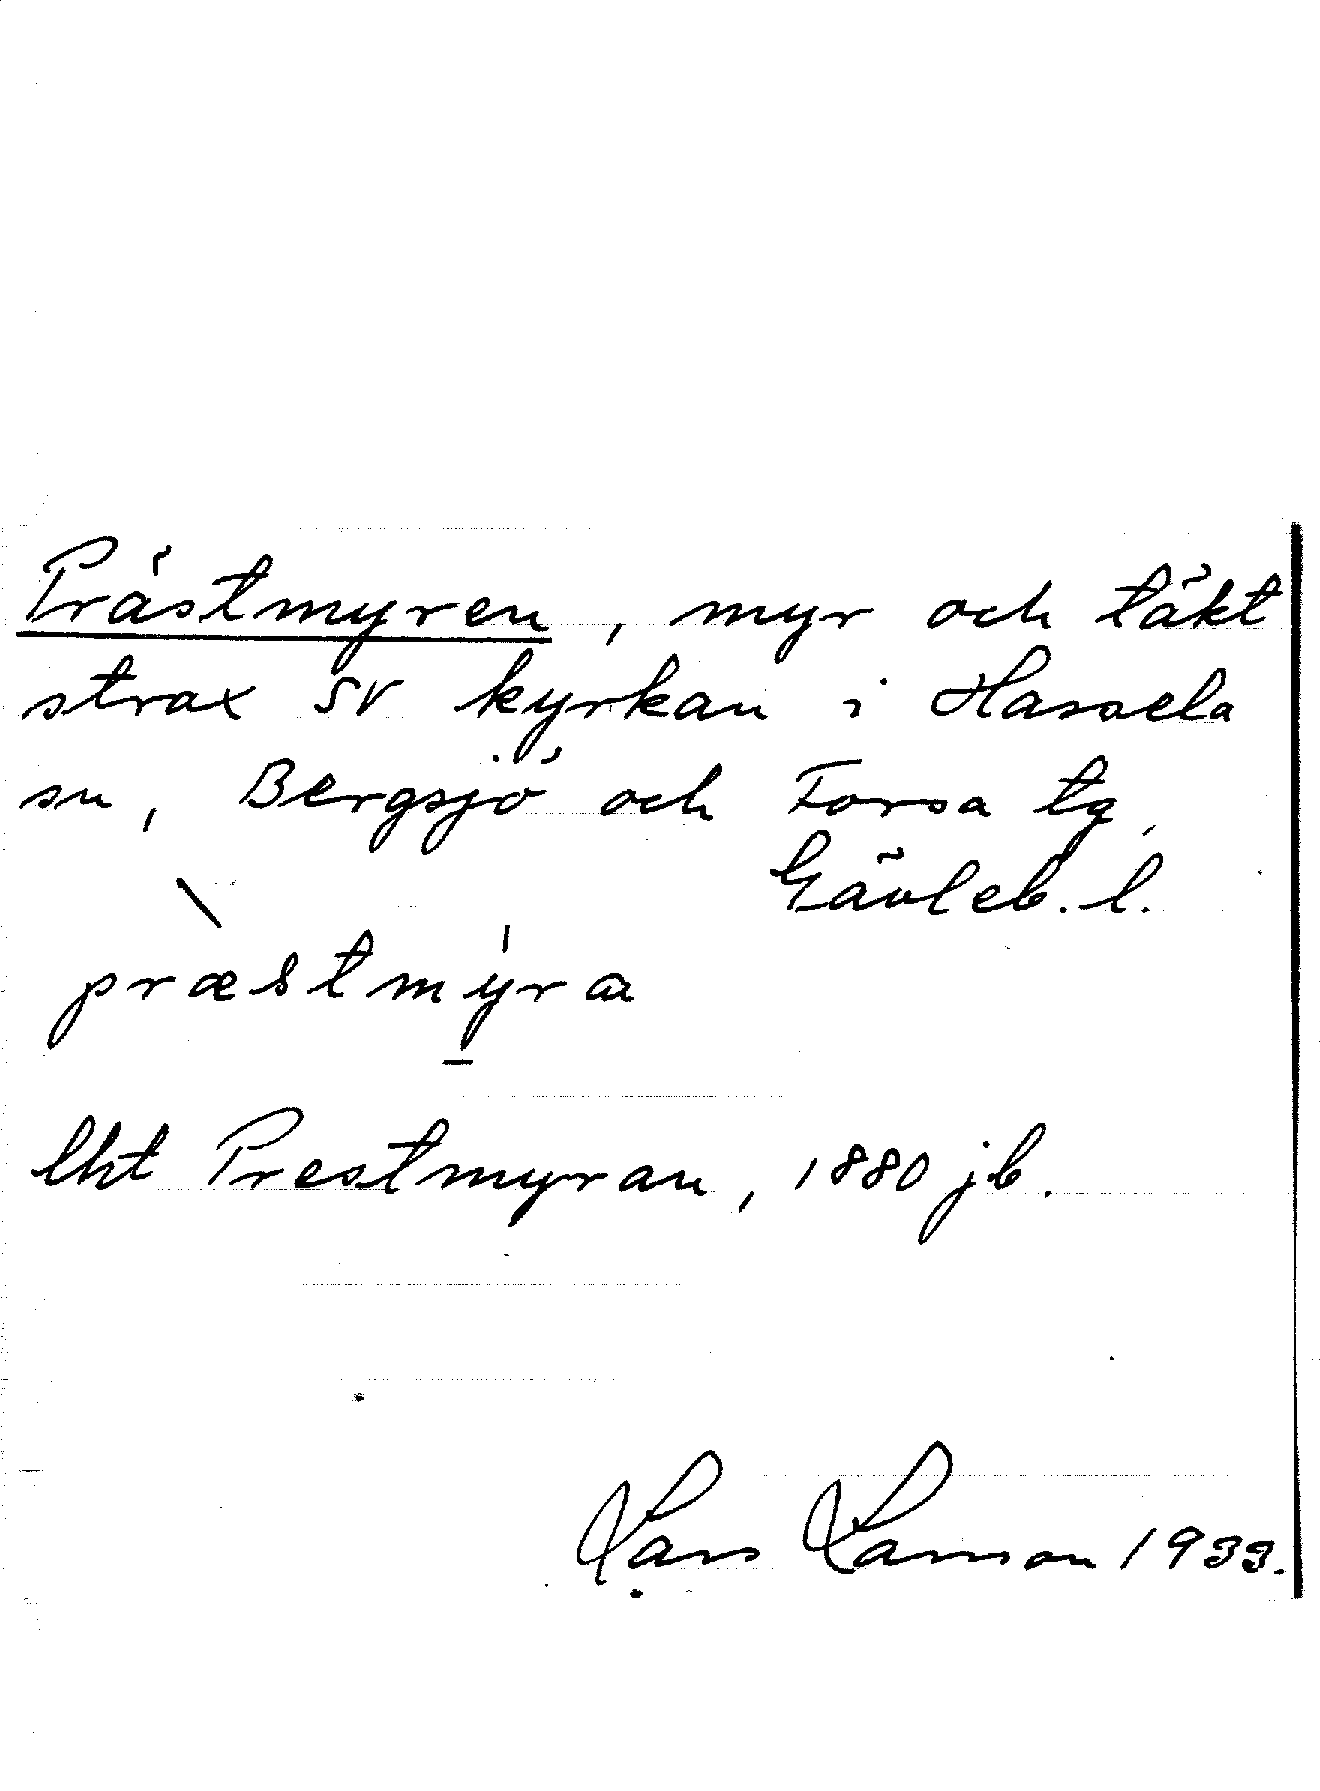 Prästmyren, myr och täkt
strax SV kyrkan i Hassela
sn, Bergsjö och Forsa tg,
Gävleb. l.
præstmyra
lht Prestmyran, 1880 jb.
Lars Larsson 1933.